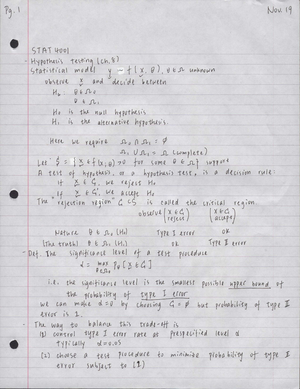 Pg. 1
Nov 19
STAT 4001
- Hypothesis testing (ch. 8)
Statistical model X ~ f(x, θ), θ ∈ Ω unknown
observe X and decide between
H₀ : θ ∈ Ω₀
θ ∈ Ω₁
H₀ is the null hypothesis
H₁ is the alternative hypothesis.
Here we require Ω₀ ∩ Ω₁ = ∅
Ω₀ ∪ Ω₁ = Ω (complete)
Let S = { x : f(x, θ) > 0 for some θ ∈ Ω } support
A test of hypothesis, or a hypothesis test, is a decision rule:
if X ∈ C, we reject H₀
if X ∉ C, we accept H₀
The "rejection region" C ⊂ S is called the critical region.
observe (X ∈ C) (X ∉ C)
reject accept
Nature θ ∈ Ω₀ (H₀) Type I error OK
(the truth) θ ∈ Ω₁ (H₁) OK Type II error
- Def. The significance level of a test procedure
α = max P_θ [X ∈ C]
θ ∈ Ω₀
i.e. the significance level is the smallest possible upper bound of
the probability of type I error
we can make α = 0 by choosing C = ∅ but probability of type II
error is 1.
- The way to balance this trade-off is
(1) control type I error rate at prespecified level α
typically α = 0.05
(2) choose a test procedure to minimize probability of type II
error subject to (1)